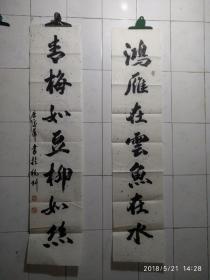 鴻雁在雲魚在水
青梅如豆柳如絲
2018/5/21 14:28